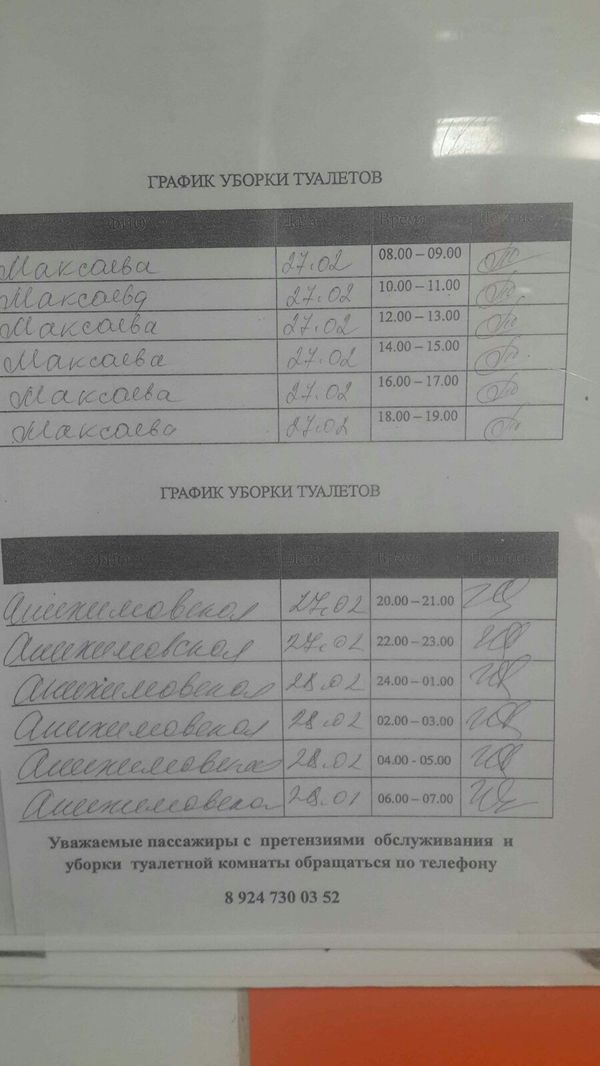 ГРАФИК УБОРКИ ТУАЛЕТОВ
ФИО Дата Время Подпись
Максаева 27.02 08.00 – 09.00
Максаева 27.02 10.00 – 11.00
Максаева 27.02 12.00 – 13.00
Максаева 27.02 14.00 – 15.00
Максаева 27.02 16.00 – 17.00
Максаева 27.02 18.00 – 19.00
ГРАФИК УБОРКИ ТУАЛЕТОВ
ФИО Дата Время Подпись
Анихимовская 27.02 20.00 – 21.00
Анихимовская 27.02 22.00 – 23.00
Анихимовская 28.02 24.00 – 01.00
Анихимовская 28.02 02.00 – 03.00
Анихимовская 28.02 04.00 - 05.00
Анихимовская 28.01 06.00 – 07.00
Уважаемые пассажиры с претензиями обслуживания и
уборки туалетной комнаты обращаться по телефону
8 924 730 03 52